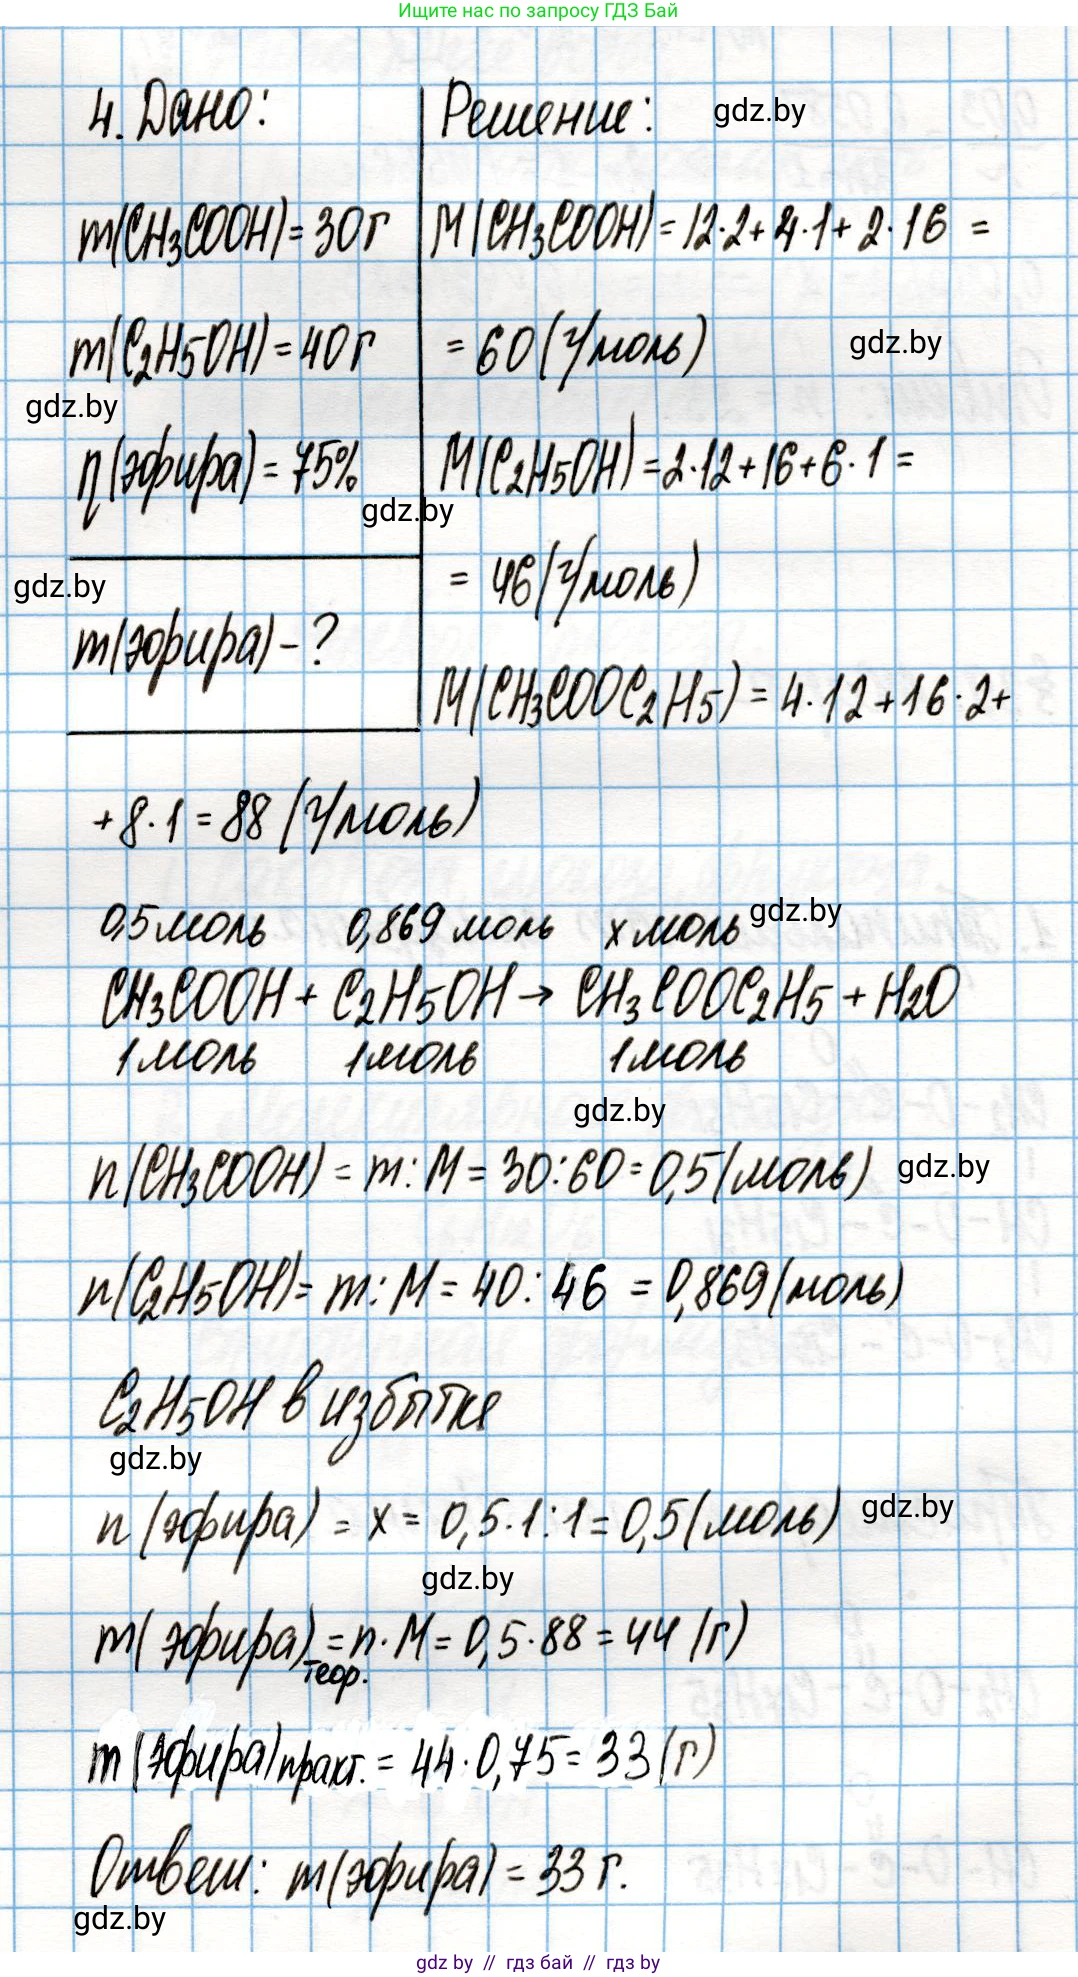 Ищите нас по запросу ГДЗ Бай
4. Дано:
Решение:
gdz.by
m(CH3COOH)=30г
M(CH3COOH)=12·2+4·1+2·16 =
m(C2H5OH)=40г
=60(г/моль)
gdz.by
gdz.by
η(эфира)=75%
M(C2H5OH)=2·12+16+6·1=
gdz.by
gdz.by
= 46(г/моль)
m(эфира)-?
M(CH3COOC2H5)=4·12+16·2+
+8·1=88(г/моль)
0,5моль 0,869 моль x моль
gdz.by
CH3COOH+C2H5OH→CH3COOC2H5+H2O
1моль 1моль 1моль
gdz.by
n(CH3COOH)=m:M=30:60=0,5(моль)
gdz.by
n(C2H5OH)=m:M=40:46=0,869(моль)
C2H5OH в избытке
gdz.by
n(эфира)=x=0,5·1:1=0,5(моль)
gdz.by
gdz.by
m(эфира)теор.=n·M=0,5·88=44(г)
m(эфира)практ.=44·0,75=33(г)
Ответ: m(эфира)=33г.
gdz.by
gdz by // гдз бай // гдз by